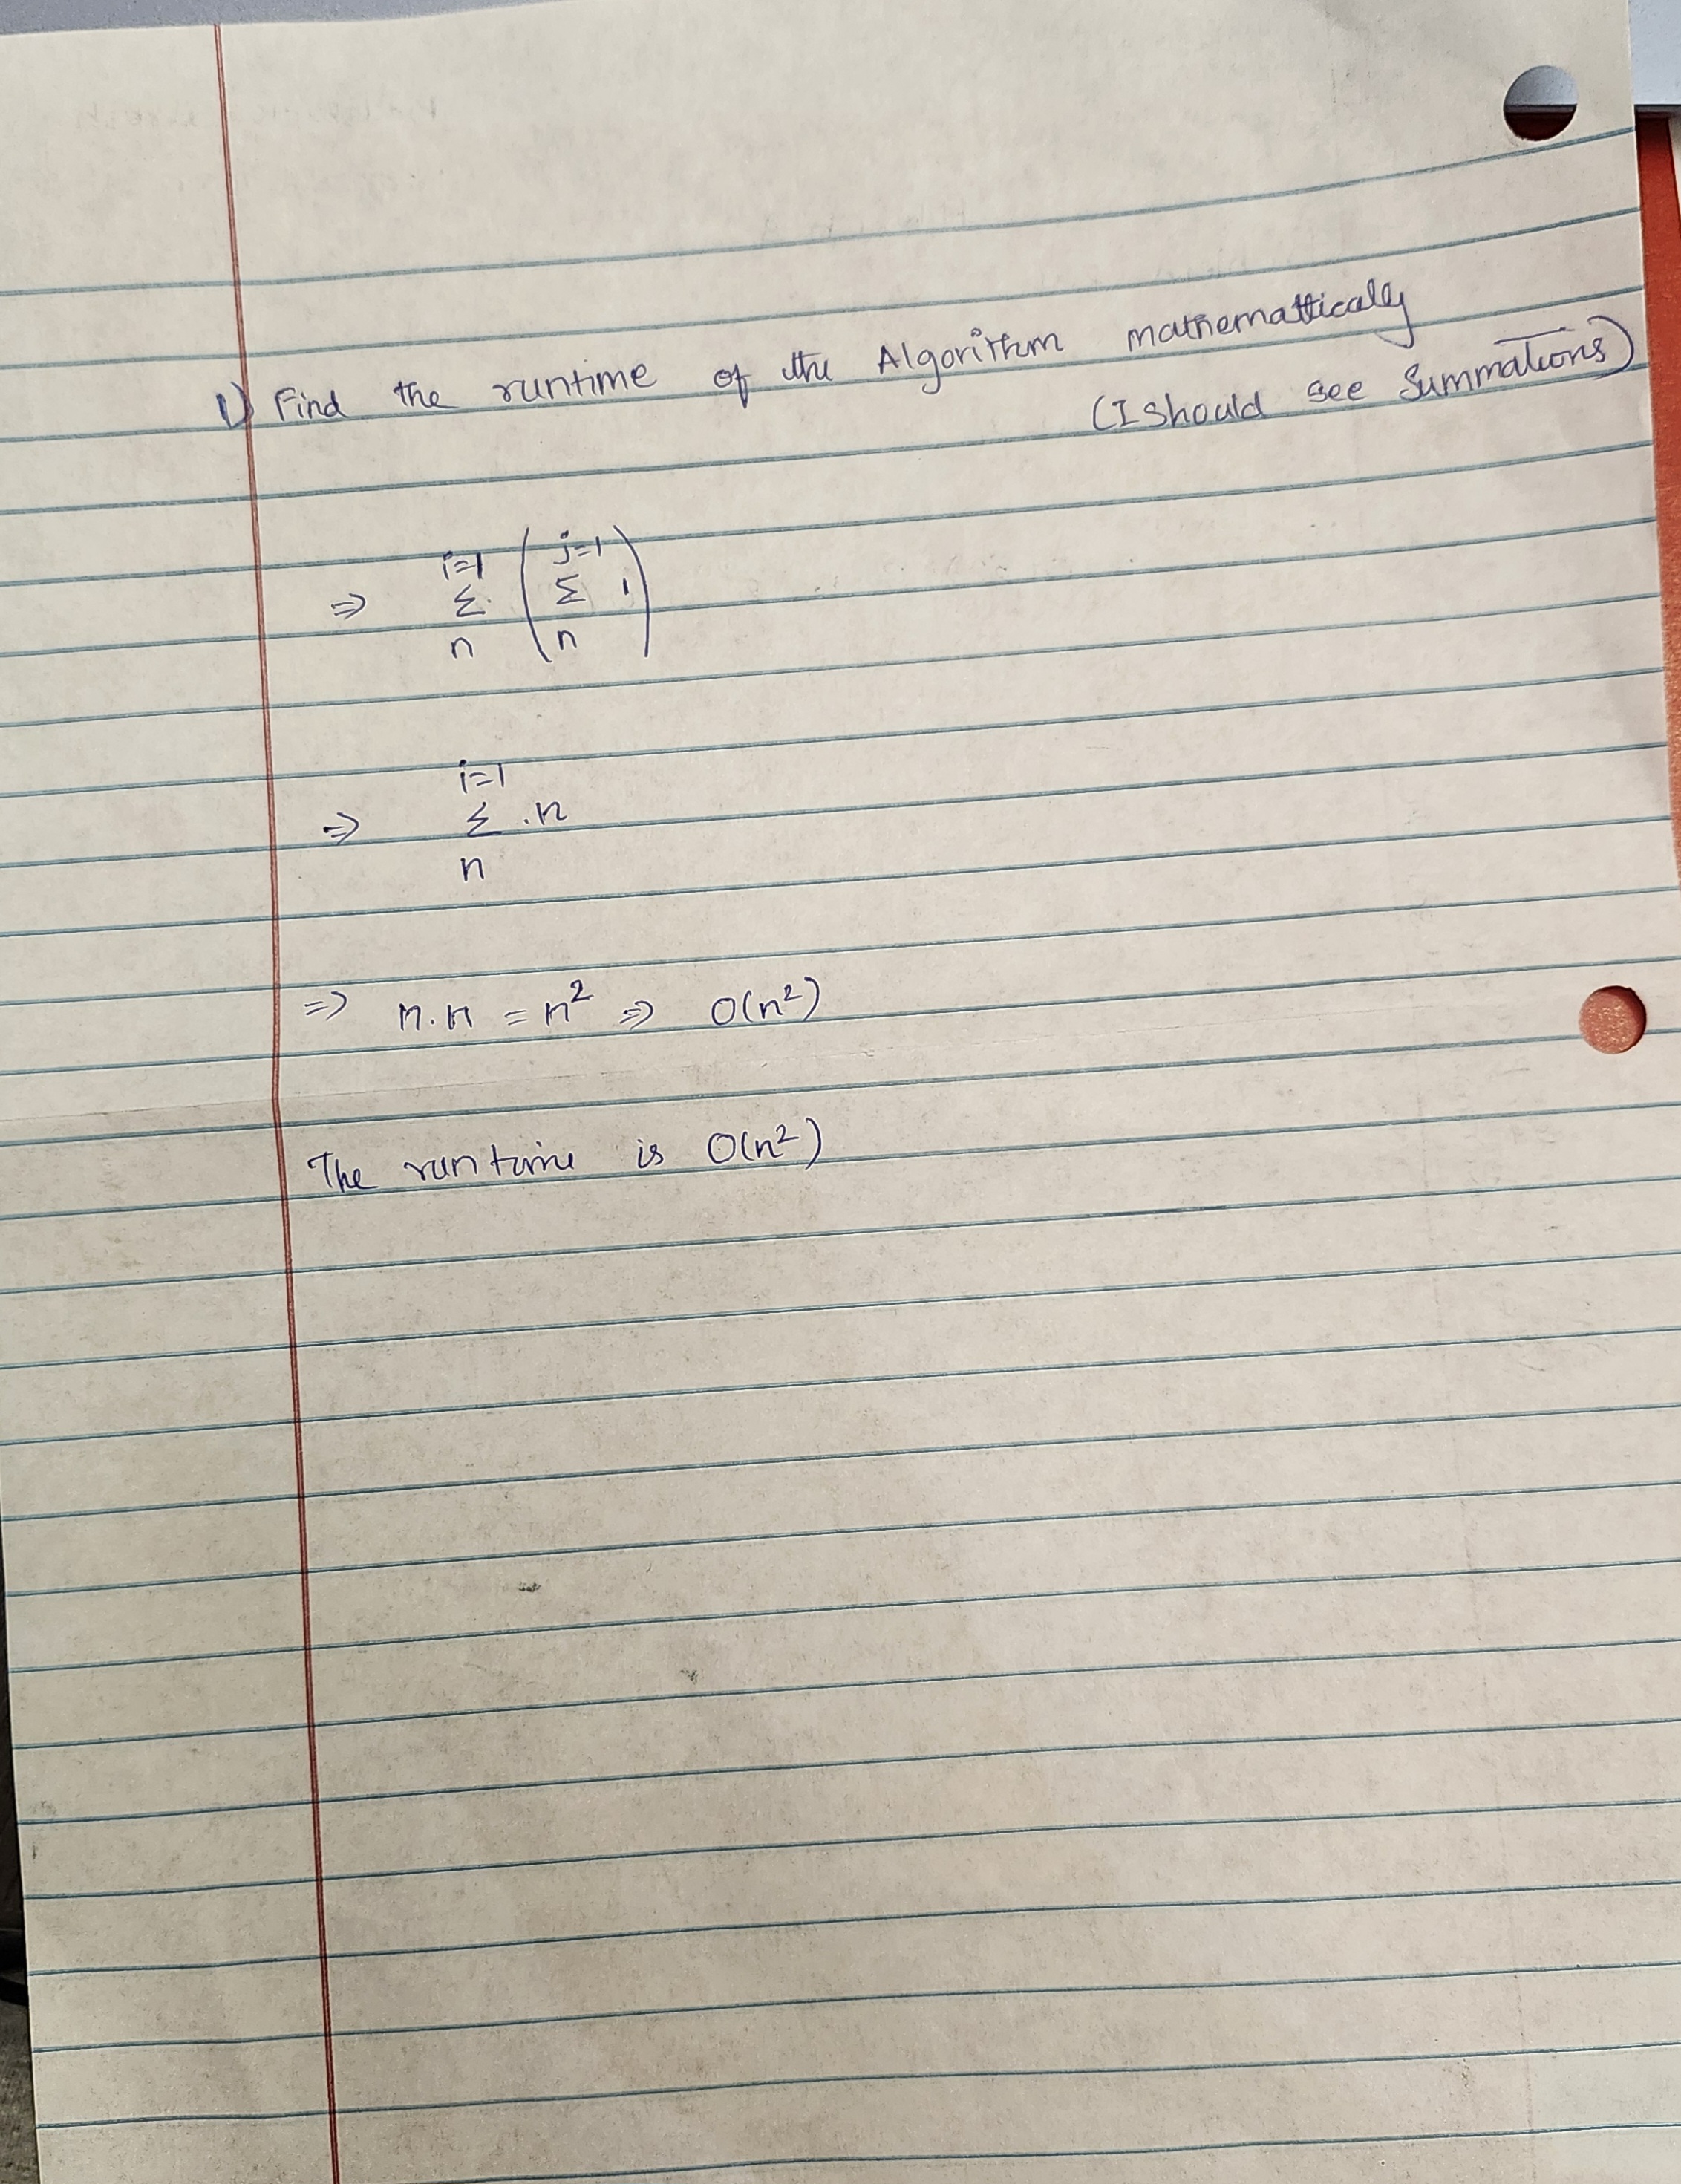 1) Find the runtime of the Algorithm mathemattically
(I should see Summations)
i=1 j=1
⇒ Σ ( Σ 1 )
n n
i=1
⇒ Σ . n
n
⇒ n.n = n² ⇒ O(n²)
The runtime is O(n²)